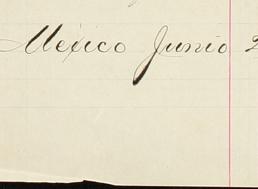 Mexico Junio 2